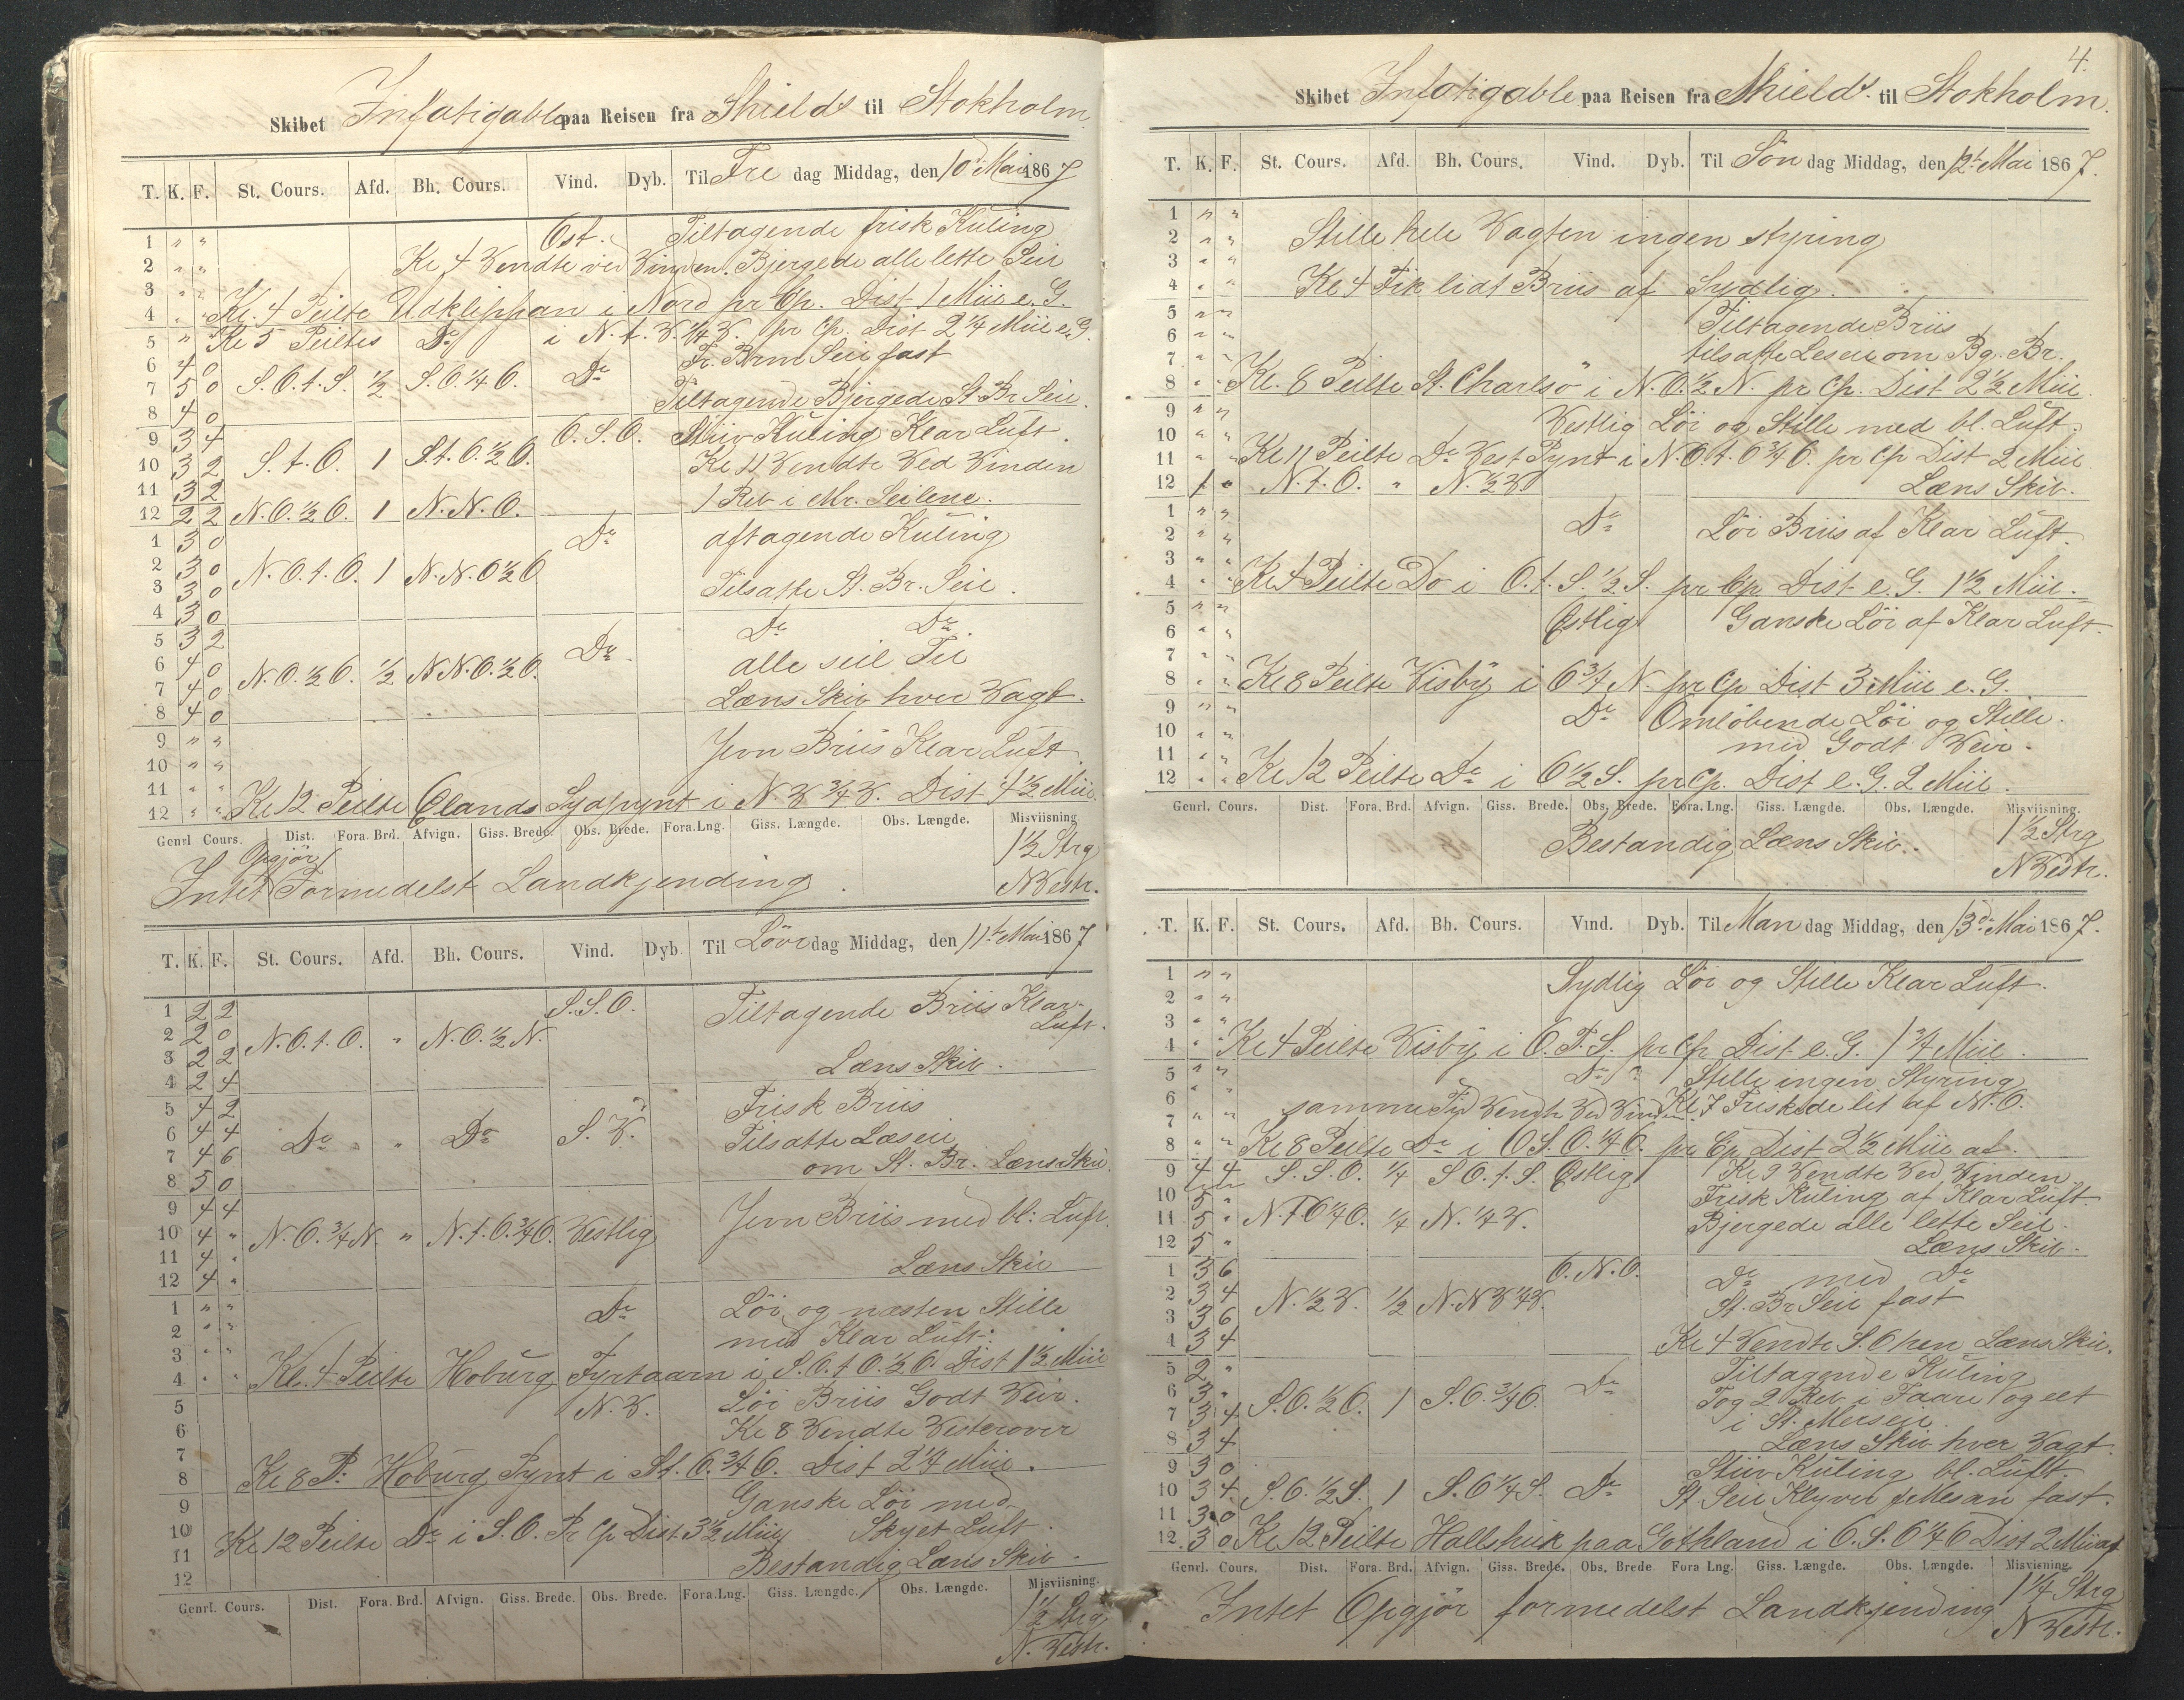 Skibet Infatigable paa Reisen fra Shields til Stokholm.
T. K. F. St. Cours. Afd. Bh. Cours. Vind. Dyb. Til Fre dag Middag, den 10de Mai 1867
1 " " Ost. Tiltagende frisk Kuling
2 " " Kl 4 Vendte ved Vinden. Bjergede alle lette Seil
3 " "
4 " " Kl. 4 Peilte Udklippan i Nord pr Cp. Dist 1 Miil e. G.
5 " Kl 5 Peiltes Do i N. t. V. 1/4 V. pr Cp. Dist 2 1/4 Miil e. G.
6 4 0 Fr. Brm Seil fast
7 5 0 S. O. t. S. 1/2 S. O. 1/4 O. Do
8 4 0 Tiltagende Bjergede St. Br Seil.
9 3 4 O. S. O. Stiiv Kuling Klar Luft.
10 3 2 S. t. O. 1 S. t. O. 1/2 O. Kl 11 Vendte Ved Vinden
11 3 2 1 Reb i Mr. Seilene.
12 2 2 N. O. 1/2 O. 1 N. N. O.
1 3 0 Do aftagende Kuling
2 3 0 N. O. t. O. 1 N. N. O 1/2 O
3 3 0 Tilsatte St. Br. Seil.
4 3 0
5 3 2 Do Do
6 4 0 N. O. 1/2 O. 1/2 N N. O. 1/2 O. Do. alle seil Til
7 4 0 Læns Skib hver Vagt.
8 4 0
9 " " Jevn Briis Klar Luft
10 " "
11 " "
12 " " Kl 12 Peilte Ølands Sydpynt i N. V 3/4 V. Dist 4 1/2 Miil.
Genrl Cours. Dist. Fora. Brd. Afvign. Giss. Brede. Obs. Brede. Fora.Lng. Giss. Længde. Obs. Længde. Misviisning.
Opgjør 1 1/2 Strg
Intet Formedelst Landkjending. N Vestr.
T. K. F. St. Cours. Afd. Bh. Cours. Vind. Dyb. Til Löver dag Middag, den 11te Mai 1867
1 2 2 S. S. O. Tiltagende Briis Klar
2 2 0 N. O. t. O. " N. O. 1/2 N. Luft.
3 2 2 Læns Skib.
4 2 4
5 4 2 Frisk Briis
6 4 4 Do " " Do S. V. Tilsatte Læseil
7 4 6 om St. Br. Læns Skib.
8 5 0
9 4 4 Jevn Briis med bl: Luft.
10 4 " N. O. 3/4 N. " N. t. O. 3/4 O. Vestlig
11 4 " Læns Skib
12 4 "
1 " " Do Löi og næsten Stille
2 " " med Klar Luft.
3 " "
4 " " Kl. 4 Peilte Hoburg Fyrtaarn i S. O. t O. 1/2 O. Dist 1 1/2 Miil
5 N. V. Löi Briis Godt Veir.
6 Kl 8 Vendte Vesterover
7
8 Kl 8 P: Hoburg Pynt i St. O. 3/4 O. Dist 2 1/4 Miil.
9 Ganske Löi med
10 Kl 12 Peilte Do i S. O. Pr Cp Dist 3 1/2 Miil Skyet Luft.
11 Bestandig Læns Skib.
12
Genrl. Cours. Dist. Fora. Brd. Afvign. Giss. Brede. Obs. Brede. Fora.Lng. Giss. Længde. Obs. Længde. Misviisning.
1 1/2 Strg
N. Vestr.
4.
Skibet Infatigable paa Reisen fra Shields. til Stokholm.
T. K. F. St. Cours. Afd. Bh. Cours. Vind. Dyb. Til Søn dag Middag, den 12te Mai 1867.
1 " "
2 " " Stille hele Vagten ingen styring
3 " "
4 " " Kl 4 Fik lidt Briis af Sydlig.
5 " " Tiltagende Briis
6 " " tilsatte Leseil om Bg. Br.
7 " "
8 " " Kl. 8 Peilte St. Charlsö i N. O. 1/2 N. pr Cp. Dist 2 1/2 Miil.
9 " " Vestlig Löi og Stille med bl. Luft.
10 " "
11 " " Kl 11 Peilte Do Vest Pynt i N. O. t. O 3/4 O. pr Cp Dist 2 Miil
12 1 " N. t. O. " N. 1/2 V. Læns Skib.
1 " " Do Löi Briis af Klar Luft.
2 " "
3 " "
4 " " Kl 4 Peilte Do i O. t. S. 1/2 S. pr Cp Dist e. G. 1 1/2 Miil.
5 " " Østlig Ganske Löi af Klar Luft.
6 " "
7 " "
8 " " Kl 8 Peilte Visby i O 3/4 N. pr Cp Dist 3 Miil e. G.
9 " " Do Omløbende Löi og Stille.
10 " " med Godt Veir.
11 " "
12 " " Kl 12 Peilte Do i O 1/2 S. pr Cp. Dist e. G. 2 Miil.
Genrl. Cours. Dist. Fora. Brd. Afvign. Giss. Brede. Obs. Brede. Fora. Lng. Giss. Længde. Obs. Længde. Misviisning.
Bestandig Læns Skib. 1 1/2 Strg
N Vestr.
T. K. F. St. Cours. Afd. Bh. Cours. Vind. Dyb. Til Man dag Middag, den 13de Mai 1867.
1 " " Sydlig Löi og Stille Klar Luft.
2 " "
3 " "
4 " " Kl 4 Peilte Visby i O. T. S. pr Cp Dist e. G. 1 3/4 Miil.
5 " " Do " Stille ingen Styring
6 " " Kl 7 Friskede let af N. O.
7 " " samme Tid Vendt Ved Vinden
8 " " Kl 8 Peilte Do i O S. O. 1/4 O. pr Cp Dist 2 1/2 Miil af.
9 4 4 S. S. O. 1/4 S O. t. S. Østlig Kl 9 Vendte Ved Vinden
10 5 " Frisk Kuling af Klar Luft
11 5 " N. T O 1/4 O. 1/4 N. 1/4 V. Bjergede alle lette Seil.
12 5 " Læns Skib.
1 3 6 O. N. O. Do med Do
2 3 4 N. 1/2 V. 1/2 N. N V 1/4 V. St. Br Seil fast
3 3 6
4 3 4 Kl 4 Vendte S. O hen Læns Skib.
5 2 " Tiltagende Kuling
6 3 " S. O. 1/2 O. 1 S. O. 3/4 O. Do Tog 2 Reb i Faare og et
7 3 4 i St. Merseil.
8 3 4 Læns Skib hver Vagt.
9 3 0 Stiiv Kuling bl. Luft.
10 3 4 S. O. 1/2 S. 1 S. O 1/4 S. Do St. Seil Klyver & Mesan fast.
11 3 0
12 3 0 Kl 12 Peilte Hallshuk paa Gothland i O. S. O 1/4 O Dist 2 Miil af
Genrl. Cours. Dist. Fora. Brd. Afvign. Giss. Brede. Obs. Brede Fora Lng. Giss. Længde. Obs. Længde. Misvisning.
1 1/4 Strg
Intet Opgjör formedelst Landkjending N Vestr.